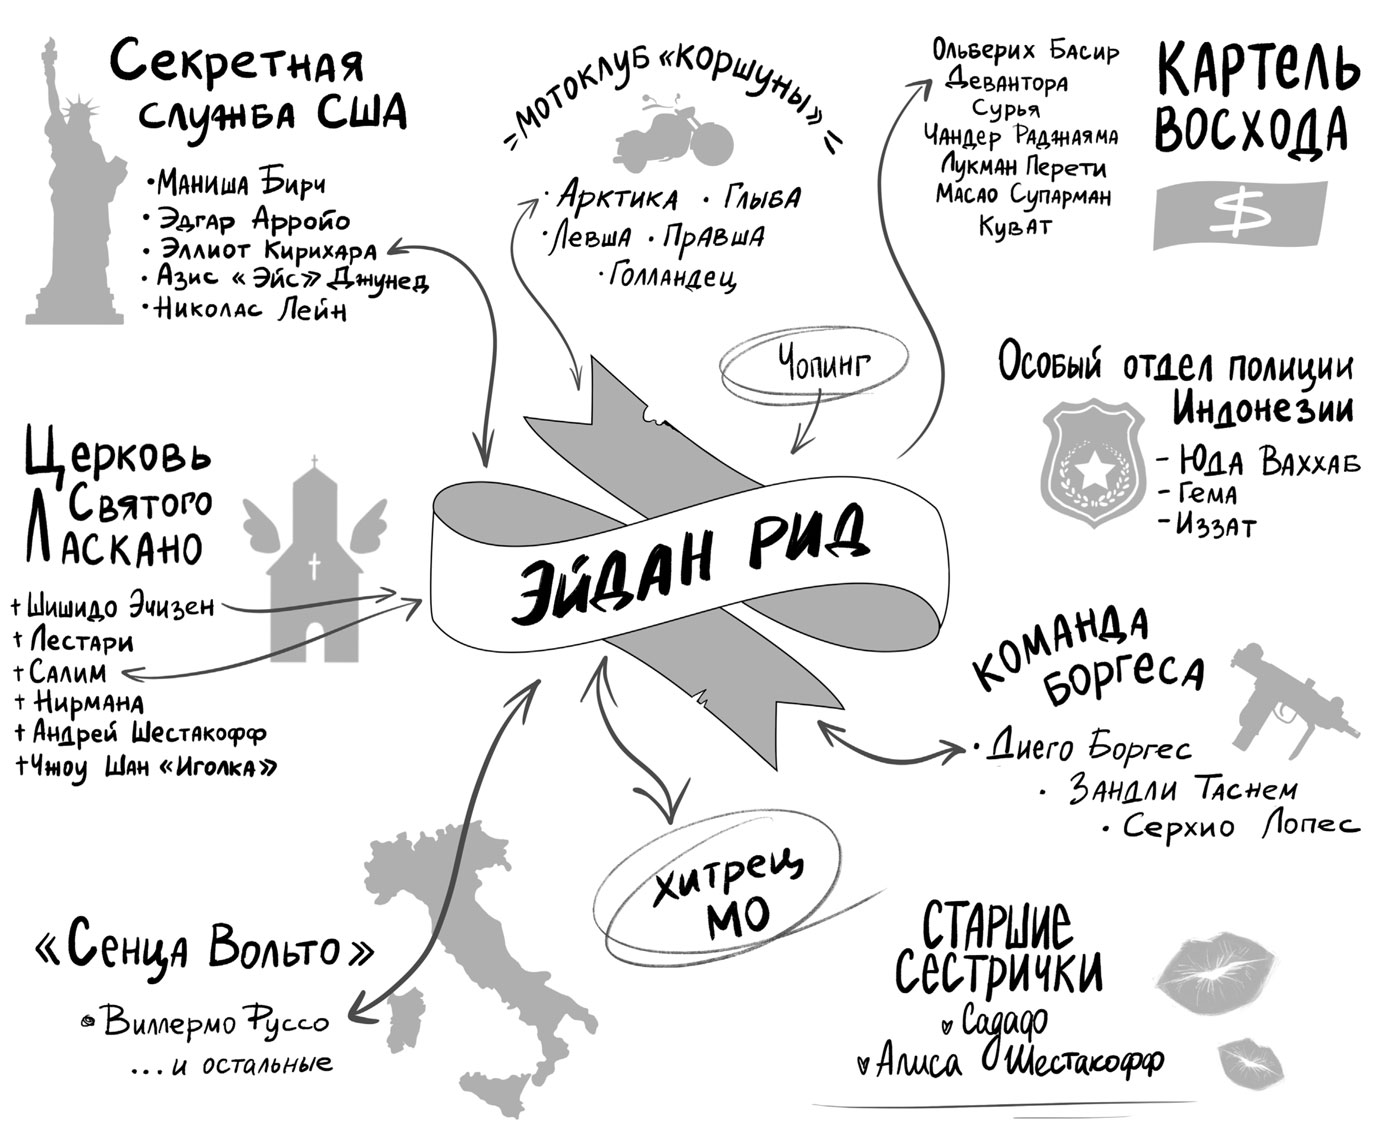 Секретная
служба США
• Маниша Бирч
• Эдгар Арройо
• Эллиот Кирихара
• Азис «Эйс» Джунед
• Николас Лейн
Мотоклуб «Коршуны»
• Арктика • Глыба
• Левша • Правша
• Голландец
Ольберих Басир
Девантора
Сурья
Чандер Раджаяма
Лукман Перети
Масао Супарман
Куват
Картель
Восхода
$
Чопинг
Особый отдел полиции
Индонезии
- Юда Ваххаб
- Гема
- Иззат
Церковь
Святого
Ласкано
+ Шишидо Эчизен
+ Лестари
+ Салим
+ Нирмана
+ Андрей Шестакофф
+ Чжоу Шан «Иголка»
Эйдан Рид
Команда
Боргеса
• Диего Боргес
• Зандли Таснем
• Серхио Лопес
Хитрец
Мо
«Сенца Вольто»
• Виллермо Руссо
...и остальные
Старшие
сестрички
Садафо
Алиса Шестакофф